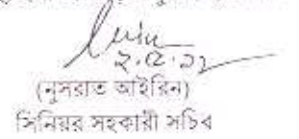 ২.৫.২২
(নুসরাত আইরিন)
সিনিয়র সহকারী সচিব